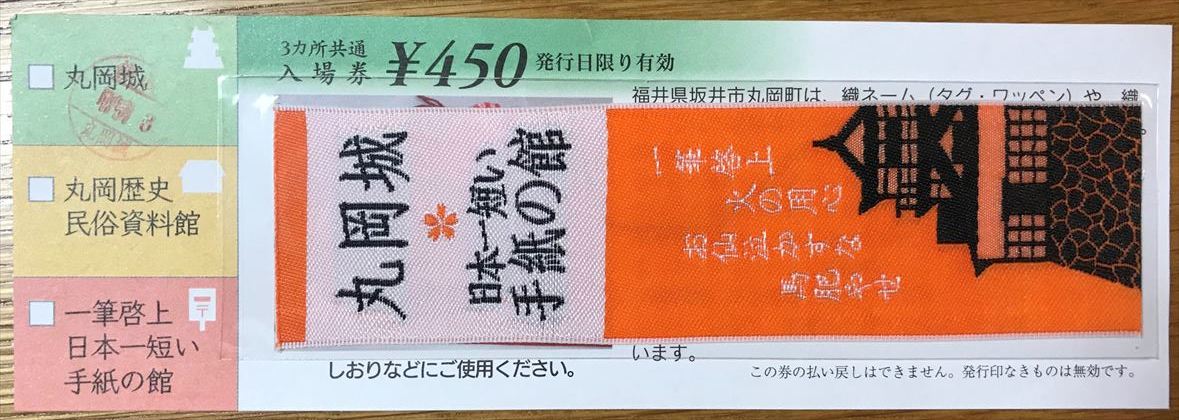 丸岡城
丸岡歴史
民俗資料館
一筆啓上
日本一短い
手紙の館
3カ所共通
入場券 ¥450 発行日限り有効
福井県坂井市丸岡町は、織ネーム（タグ・ワッペン）や、織
丸岡城
日本一短い
手紙の館
一筆啓上
火の用心
お仙泣かすな
馬肥やせ
しおりなどにご使用ください。
います。
この券の払い戻しはできません。発行印なきものは無効です。